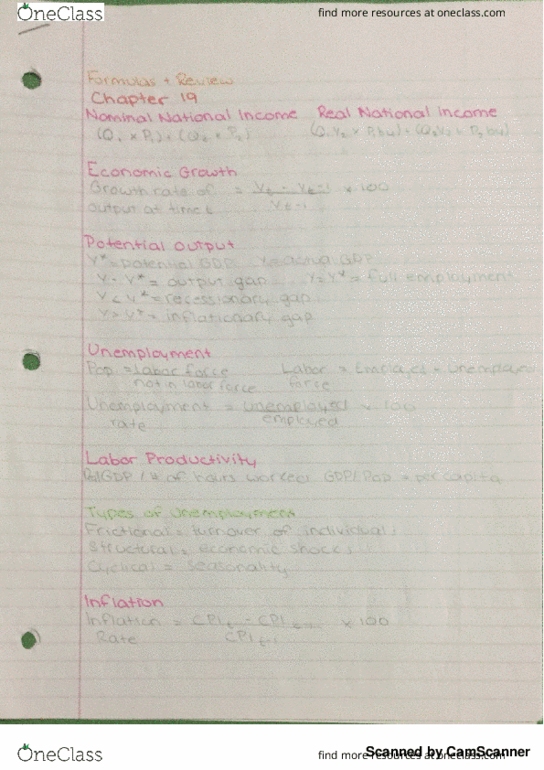 OneClass
find more resources at oneclass.com
Formulas + Review
Chapter 19
Nominal National Income Real National income
(Q, x P,) + (Q₂ x P₂)
Economic Growth
Growth rate of = Yt - Yt-1 x 100
output at time t Yt-1
Potential output
Y* = potential GDP Y = actual GDP
Y - Y* = output gap Y = Y* = full employment
Y < Y* = recessionary gap
Y > Y* = inflationary gap
Unemployment
Pop. = labor force Labor = Employed + Unemploye
not in labor force force
Unemployment = unemployed x 100
rate employed
Labor Productivity
GDP / # of hours worked GDP/Pop = per capita
Types of Unemployment
Frictional = turnover of individuals
Structural = economic shocks
Cyclical = seasonality
Inflation
Inflation = CPIt - CPIt-1 x 100
Rate CPIt-1
OneClass
find more resources at oneclass.com
Scanned by CamScanner